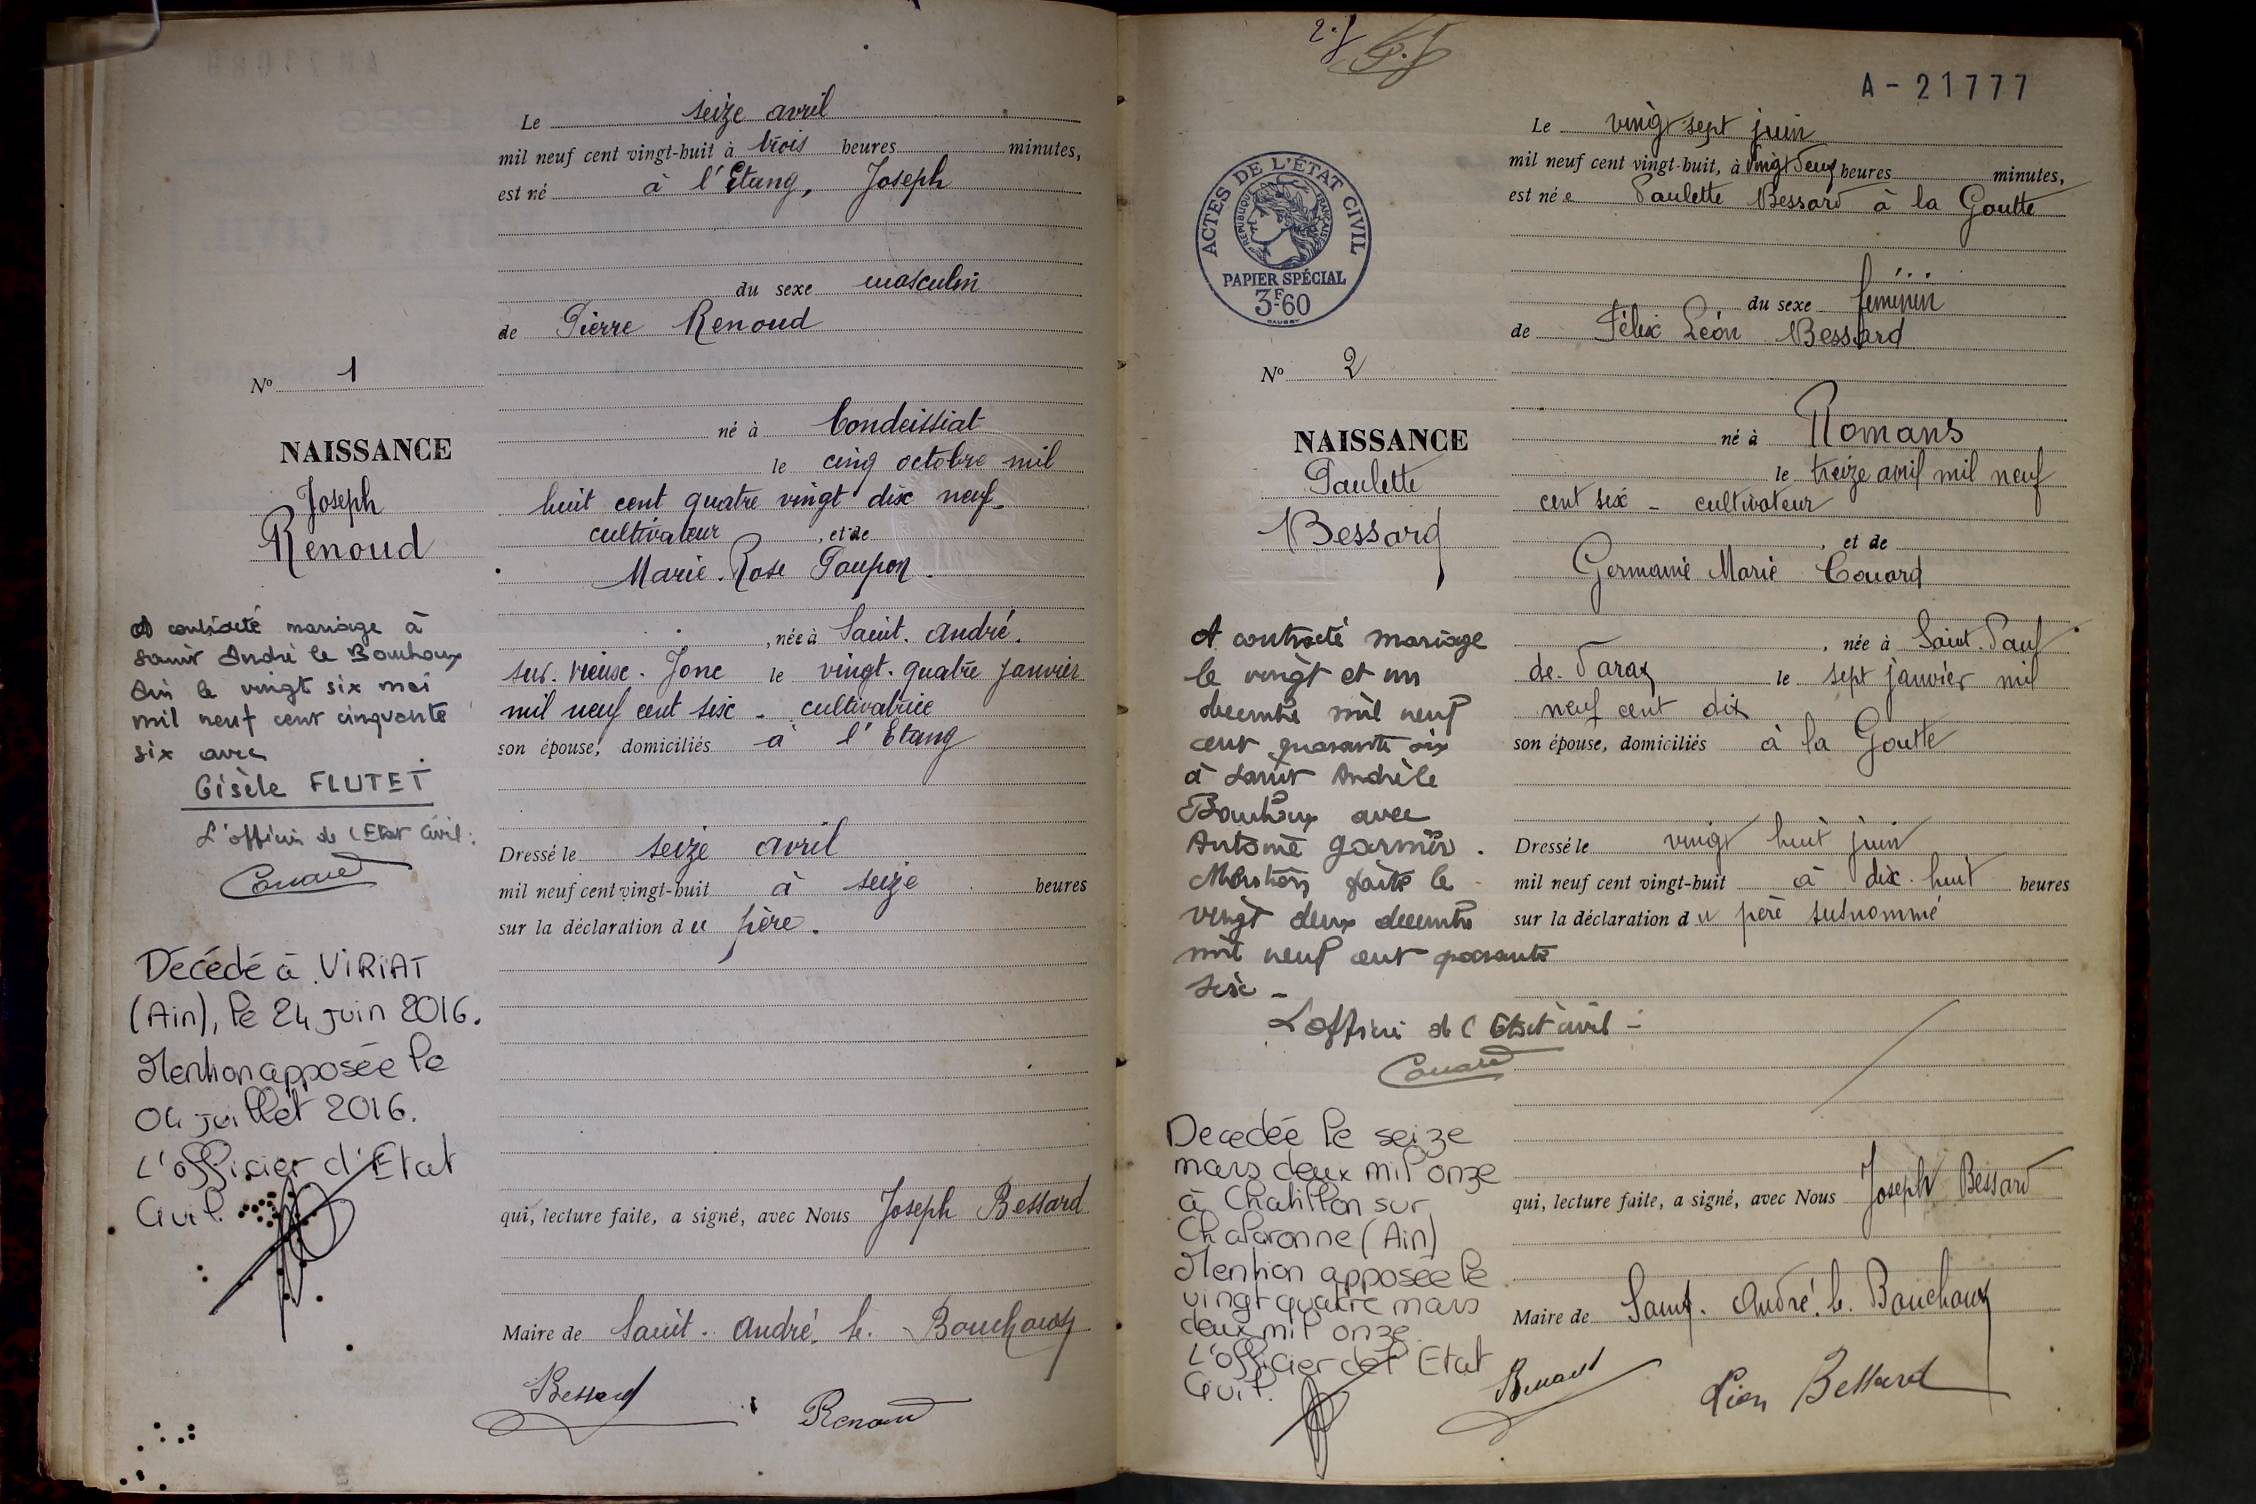 Le seize avril
mil neuf cent vingt-huit à trois heures minutes,
est né à l'Etang, Joseph
du sexe masculin
de Pierre Renoud
né à Condeissiat
le cinq octobre mil
huit cent quatre vingt dix neuf
cultivateur , et de
Marie. Rose Poupon.
, née à Saint. André.
sur. vieux. Jonc le vingt. quatre janvier
mil neuf cent six - cultivatrice
son épouse, domiciliés à l'Etang
Dressé le seize avril
mil neuf cent vingt-huit à seize heures
sur la déclaration du père.
qui, lecture faite, a signé, avec Nous Joseph Bessard
Maire de Saint. André. le. Bouchoux
Bessard
Renoud
N° 1
NAISSANCE
Joseph
Renoud
A contracté mariage à
Saint André le Bouchoux
Ain le vingt six mai
mil neuf cent cinquante
six avec
Gisèle FLUTET
L'officier de l'Etat Civil:
Couard
Décédé à VIRIAT
(Ain), le 24 juin 2016.
Mention apposée le
04 juillet 2016.
L'officier d'Etat
Civil.
2.f
A - 21777
ACTES DE L'ÉTAT CIVIL
RÉPUBLIQUE FRANÇAISE
PAPIER SPÉCIAL
3F60
Le vingt sept juin
mil neuf cent vingt-huit, à vingt deux heures minutes,
est née Paulette Bessard à la Goutte
du sexe féminin
de Félix Léon Bessard
né à Romans
le treize avril mil neuf
cent six - cultivateur
, et de
Germaine Marie Couard
, née à Saint. Paul
de. Varax le sept janvier mil
neuf cent dix
son épouse, domiciliés à la Goutte
Dressé le vingt huit juin
mil neuf cent vingt-huit à dix. huit heures
sur la déclaration du père susnommé
qui, lecture faite, a signé, avec Nous Joseph Bessard
Maire de Saint. André. le. Bouchoux
Bessard
Léon Bessard
N° 2
NAISSANCE
Paulette
Bessard
A contracté mariage
le vingt et un
décembre mil neuf
cent quarante six
à Saint André le
Bouchoux avec
Antoine Garnier.
Mention faite le
vingt deux décembre
mil neuf cent quarante
six -
L'officier de l'Etat civil -
Couard
Decedée le seize
mars deux mil onze
à Chatillon sur
Chalaronne (Ain)
Mention apposée le
vingt quatre mars
deux mil onze.
L'officier de l'Etat
Civil.